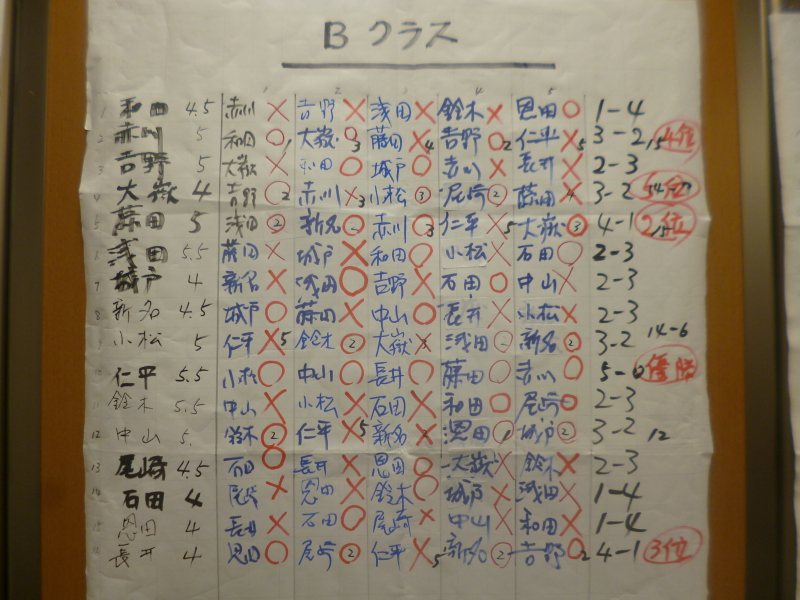 B クラス
1 2 3 4 5
1 和田 4.5 赤川 × 吉野 × 浅田 × 鈴木 × 恩田 ○ 1-4
2 赤川 5 和田 ○1 大嶽 ○3 藤田 ×4 吉野 ○2 仁平 ×5 3-2 15 4位
3 吉野 5 大嶽 × 和田 ○ 城戸 ○ 赤川 × 長井 × 2-3
4 大嶽 4 吉野 ○2 赤川 ×3 小松 ③ 尾崎 ② 藤田 ×4 3-2 5位
5 藤田 5 浅田 ② 新名 ○ 赤川 ○3 仁平 ×5 大嶽 ③ 4-1 2位
6 浅田 5.5 藤田 × 城戸 × 和田 ○ 小松 × 石田 ○ 2-3
7 城戸 4 新名 × 浅田 ○ 吉野 × 石田 ○ 中山 × 2-3
8 新名 4.5 城戸 ○ 藤田 × 中山 ○ 長井 × 小松 × 2-3
小松 5 仁平 ×5 鈴木 ② 大嶽 × 浅田 ○ 新名 ② 3-2 14-6
仁平 5.5 小松 ○ 中山 ○ 長井 ○ 藤田 ○ 赤川 ○ 5-0 優勝
鈴木 5.5 中山 × 小松 × 石田 ○ 和田 ○ 尾崎 ○ 2-3
12 中山 5. 鈴木 ② 仁平 ×5 新名 × 恩田 ○1 城戸 ② 3-2 12
13 尾崎 4.5 石田 ○ 長井 × 恩田 ○ 大嶽 × 鈴木 × 2-3
14 石田 4 尾崎 × 恩田 × 鈴木 ○ 城戸 × 浅田 × 1-4
15 恩田 4 長井 × 石田 ○ 尾崎 × 中山 × 和田 × 1-4
16 長井 4 恩田 ○ 尾崎 ② 仁平 ×5 新名 ② 吉野 ○2 4-1 3位